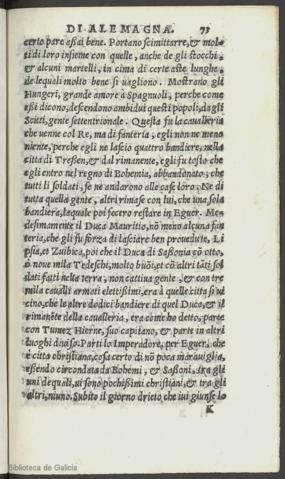 DI ALEMAGNA. 73
certo pare assai bene. Portano scimittarre, & mol-
ti di loro insieme con quelle, anche de gli stocchi,
& alcuni martelli, in cima di certe aste lunghe,
de lequali molto bene si uagliono. Mostrano gli
Hungeri, grande amore à Spagnuoli, perche come
essi dicono, descendono ambidui questi popoli, da gli
Sciti, gente settentrionale. Questa fu la caualleria
che uenne col Re, ma di fanteria, egli non ne meno
niente, perche egli ne lascio quattro bandiere, nella
citta di Tresen, & dal rimanente, egli fu tosto che
egli entro nel regno di Bohemia, abbandonato; che
tutti li soldati, se ne andarono alle case loro; Ne di
tutta quella gente, altri rimase con lui, che una sola
bandiera, laquale poi fecero restare in Eguer. Me-
desimamente il Duca Mauritio, nō meno alcuna fan
teria, che gli fu forza di lasciare ben prouedute, Li
psia, et Zuibica, poi che il Duca di Sassonia cō otto,
ò noue mila Tedeschi, molto buōi, et cō altri tāti sol
dati fatti nella terra, non cattiua gente, & con tre
mila caualli armati elettissimi, era à quelle citta si ui
cino, che le altre dodici bandiere di quel Duca, & il
rimanēte della caualleria, era come ho detto, parte
con Tumez Hierne, suo capitano, & parte in altri
luoghi diuisa. Parti lo Imperadore, per Eguer, che
è citta christiana, cosa certo di nō poca marauiglia,
essendo circondata da Bohemi, & Sassoni, tra gli
uni de quali, ui sono pochissimi christiani, & tra gli
altri, niuno. Subito il giorno drieto che iui giunse lo
K
Biblioteca de Galicia